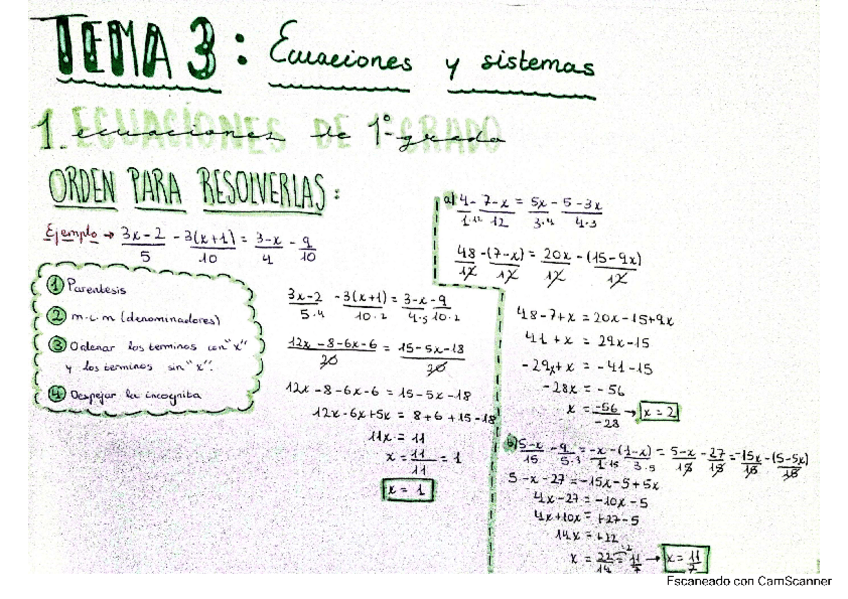 TEMA 3: Ecuaciones y sistemas
1. ecuaciones de 1º grado
ECUACIONES DE 1º GRADO
ORDEN PARA RESOLVERLAS:
Ejemplo → 3x-2/5 - 3(x+1)/10 = 3-x/4 - 9/10
① Parentesis
② m.c.m (denominadores)
③ Ordenar los terminos con "x"
y los terminos sin "x".
④ Despejar la incognita
3x-2/5·4 - 3(x+1)/10·2 = 3-x/4·5 - 9/10·2
12x-8-6x-6/20 = 15-5x-18/20
12x-8-6x-6 = 15-5x-18
12x-6x+5x = 8+6+15-18
11x = 11
x = 11/11 = 1
x = 1
a) 4/1·12 - 7-x/12 = 5x/3·4 - 5-3x/4·3
48/12 - (7-x)/12 = 20x/12 - (15-9x)/12
48-7+x = 20x-15+9x
41+x = 29x-15
-29x+x = -41-15
-28x = -56
x = -56/-28 → x = 2
b) 5-x/15 - 9/5·3 = -x/1·15 - (1-x)/3·5 = 5-x/15 - 27/15 = -15x/15 - (5-5x)/15
5-x-27 = -15x-5+5x
4x-27 = -10x-5
4x+10x = +27-5
14x = +22
x = 22/14 = 11/7 → x = 11/7
Escaneado con CamScanner